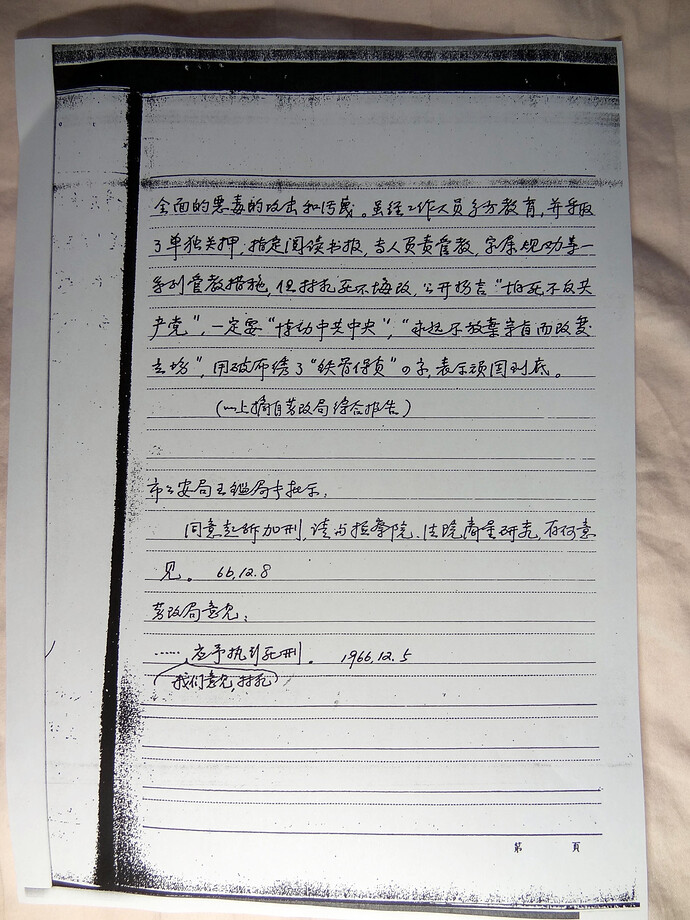 全面的恶毒的攻击和污蔑。虽经工作人员多方教育,并采取
了单独关押,指定阅读书报,专人负责管教,家属规劝等一
系列管教措施,但林犯死不悔改,公开扬言“怕死不反共
产党”,一定要“惊动中共中央”,“永远不放弃宗旨而改变
立场”,用破布绣了“铁骨保贞”的字,表示顽固到底。
(以上摘自劳改局综合报告)
市公安局王鑑局长批示:
同意起诉加刑,请与检察院、法院商量研究,有何意
见。 66.12.8
劳改局意见:
……应予执行死刑。 1966.12.5
(我们意见,林犯)
第 頁